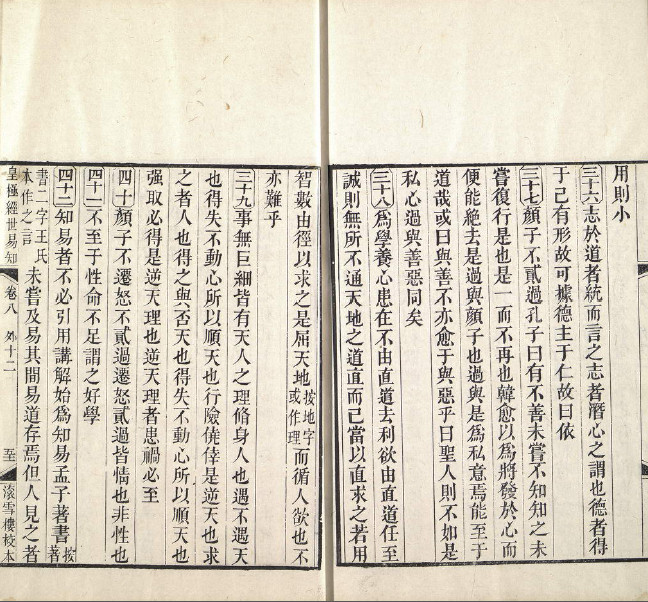 用則小
三十六志於道者統而言之志者潛心之謂也德者得
于己有形故可據德主于仁故曰依
三十七顏子不貳過孔子曰有不善未嘗不知知之未
嘗復行是也是一而不再也韓愈以為將發於心而
便能絶去是過與顏子也過與是為私意焉能至于
道哉或曰與善不亦愈于與惡乎曰聖人則不如是
私心過與善惡同矣
三十八爲學養心患在不由直道去利欲由直道任至
誠則無所不通天地之道直而已當以直求之若用
智數由徑以求之是屈天地按地字或作理而循人欲也不
亦難乎
三十九事無巨細皆有天人之理脩身人也遇不遇天
也得失不動心所以順天也行險僥倖是逆天也求
之者人也得之與否天也得失不動心所以順天也
强取必得是逆天理也逆天理者患禍必至
四十顏子不遷怒不貳過遷怒貳過皆情也非性也
四十一不至于性命不足謂之好學
四十二知易者不必引用講解始爲知易孟子著書按著
書二字王氏本作之言未嘗及易其間易道存焉但人見之者
皇極經世易知 卷八 外十二 至 滾雪樓校本